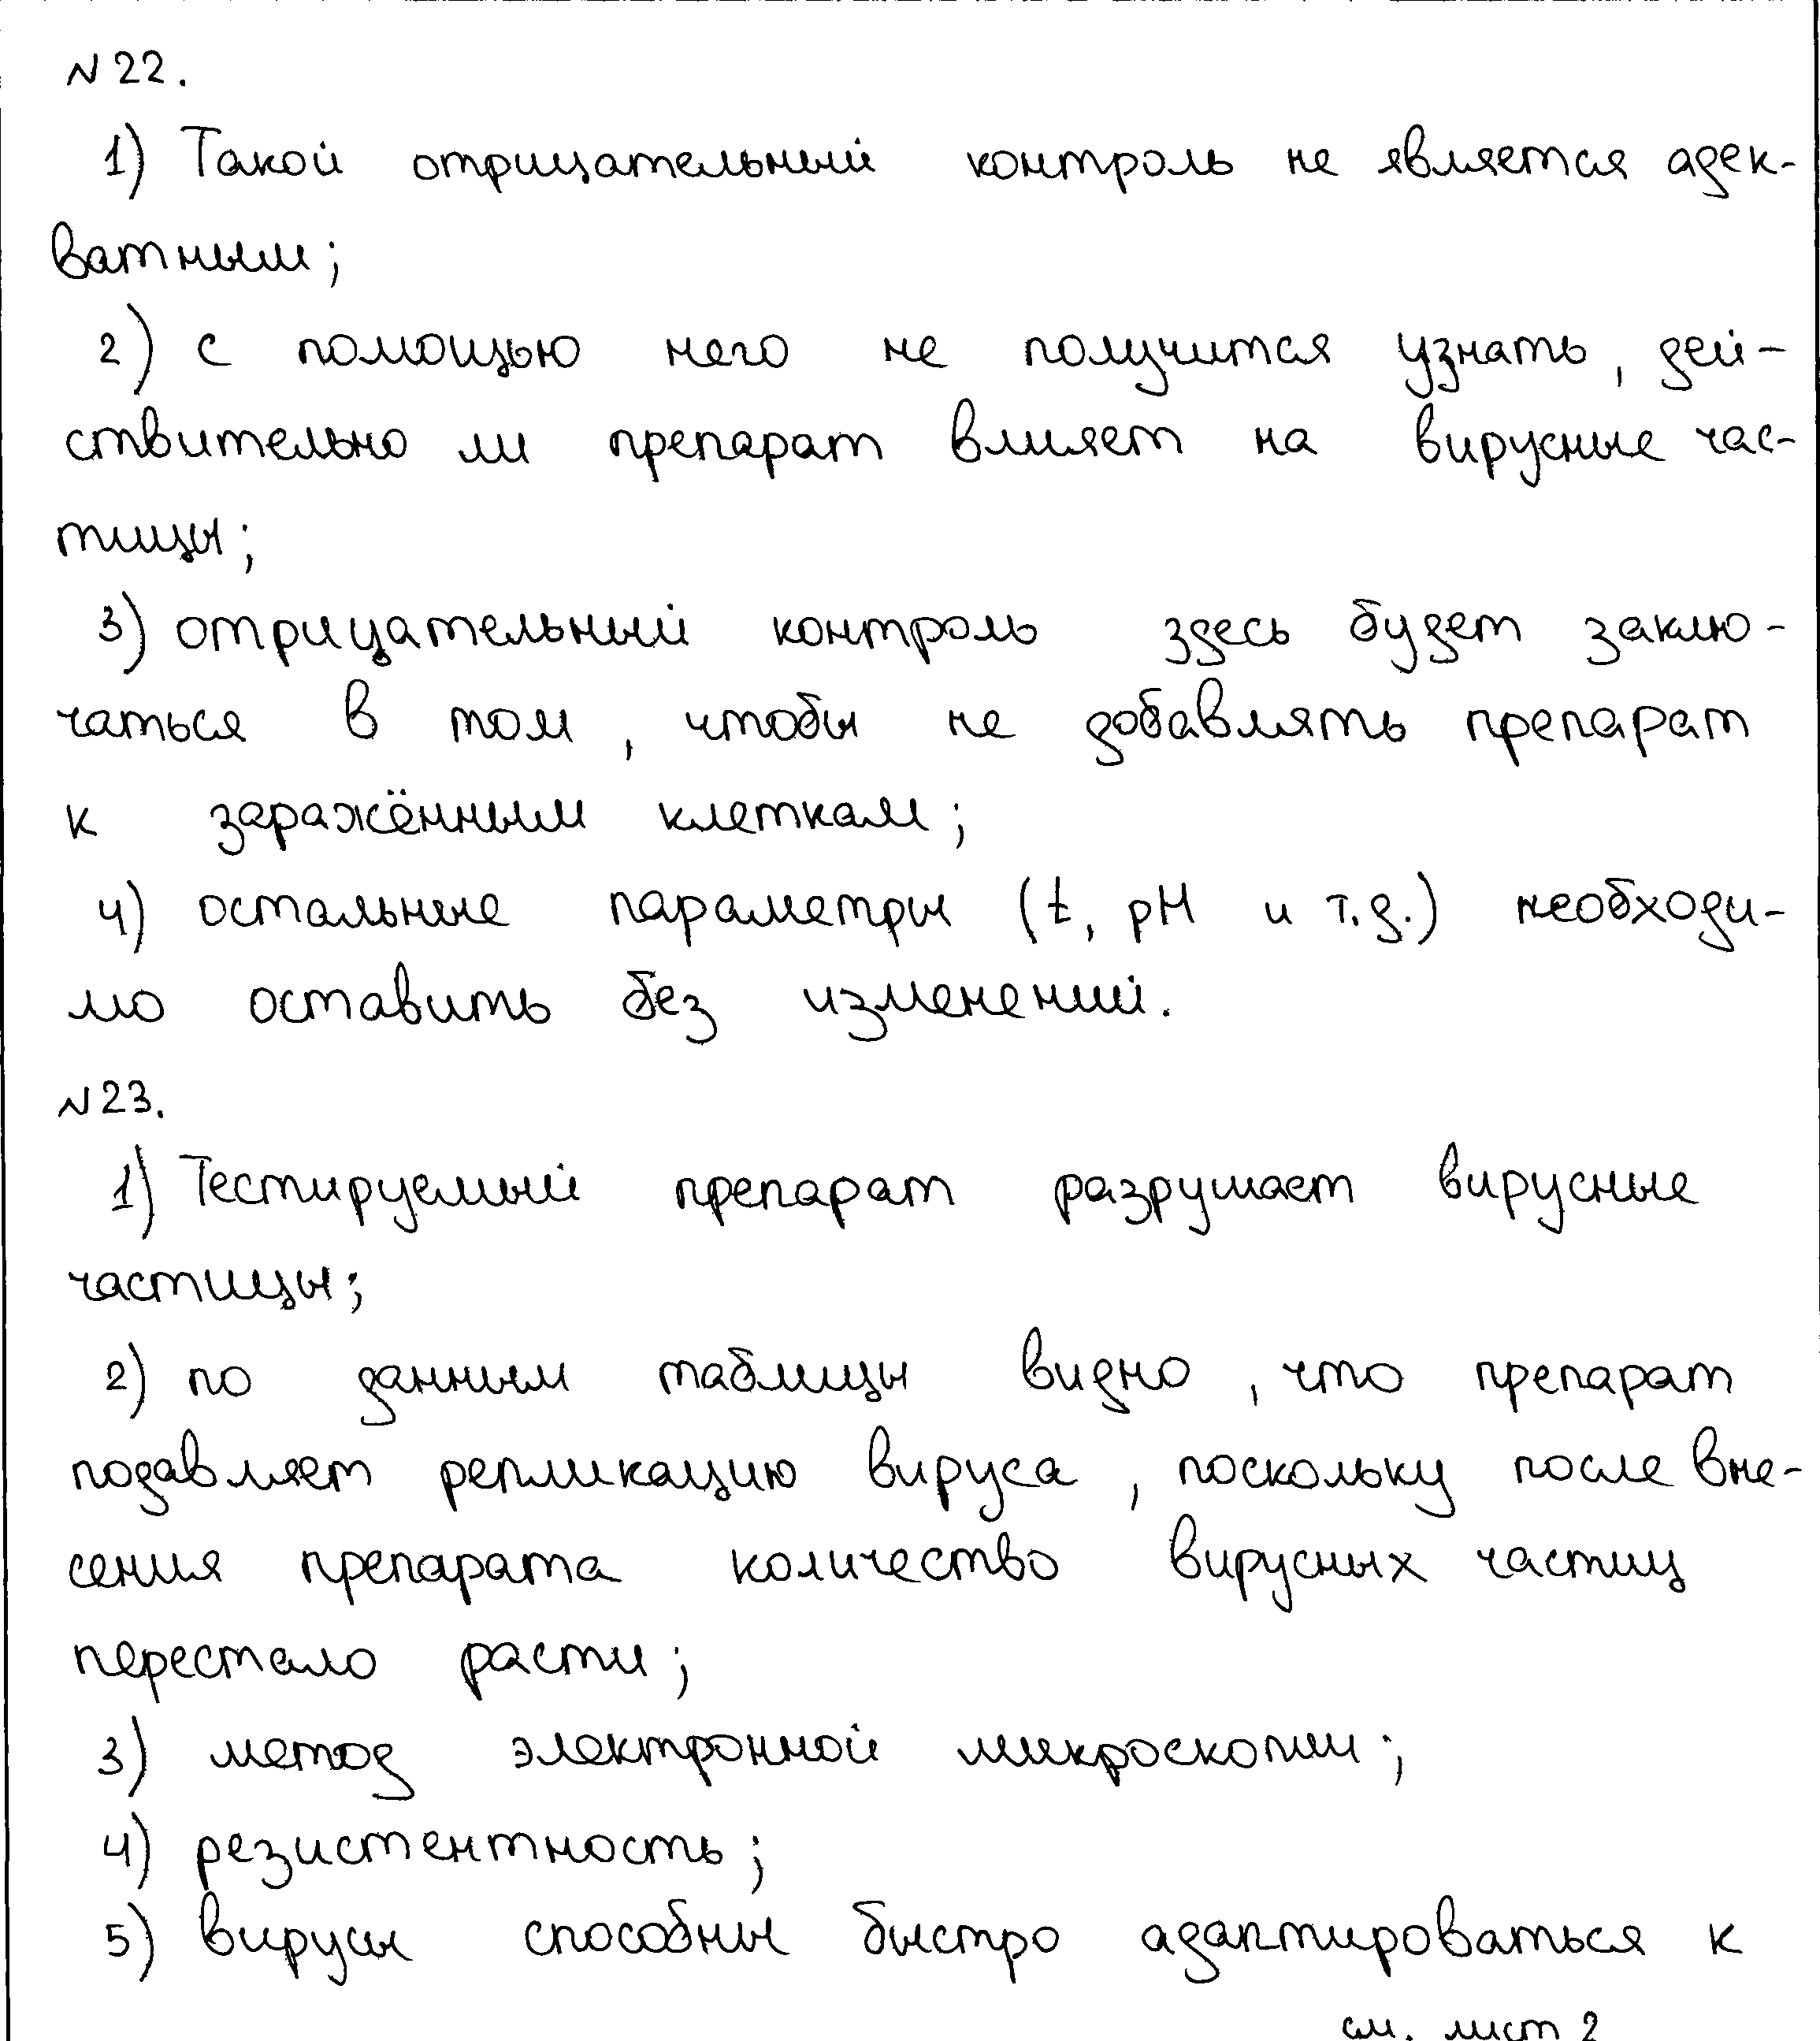 №22.
1) Такой отрицательный контроль не является адек-
ватным;
2) с помощью него не получится узнать, дей-
ствительно ли препарат влияет на вирусные час-
тицы;
3) отрицательный контроль здесь будет заклю-
чаться в том, чтобы не добавлять препарат
к заражённым клеткам;
4) остальные параметры (t, pH и т.д.) необходи-
мо оставить без изменений.
№23.
1) Тестируемый препарат разрушает вирусные
частицы;
2) по данным таблицы видно, что препарат
подавляет репликацию вируса, поскольку после вне-
сения препарата количество вирусных частиц
перестало расти;
3) метод электронной микроскопии;
4) резистентность;
5) вирусы способны быстро адаптироваться к
см. лист 2